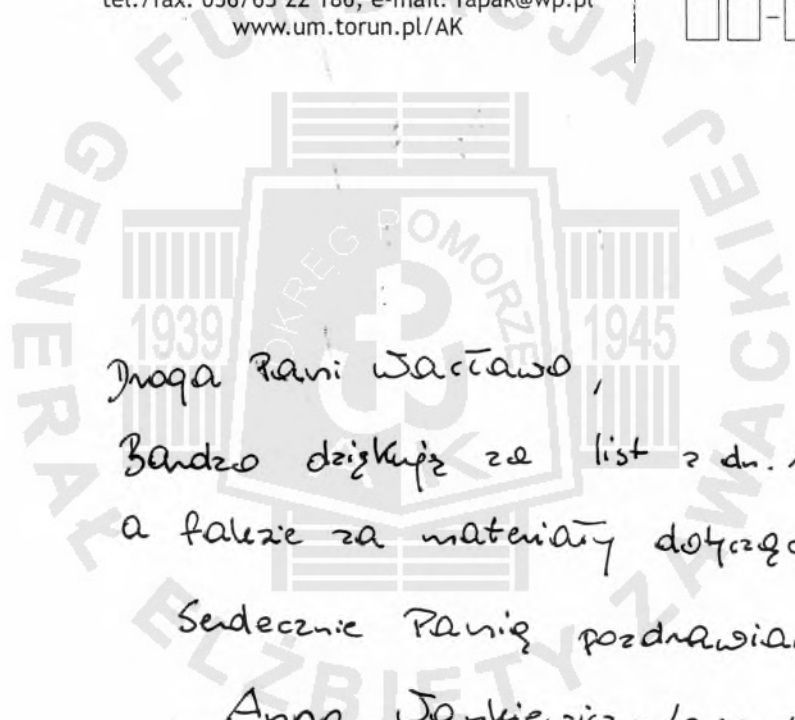 tel./fax. 056/65 22 186, e-mail: fapak@wp.pl
www.um.torun.pl/AK
FUNDACJA GENERAŁ ELŻBIETY ZAWACKIEJ
OKRĘG POMORZE
1939 1945
AK
Droga Pani Wacławo,
Bardzo dziękuję za list z dn.
a także za materiały dotycząc
Serdecznie Panią pozdrawiam
Anna